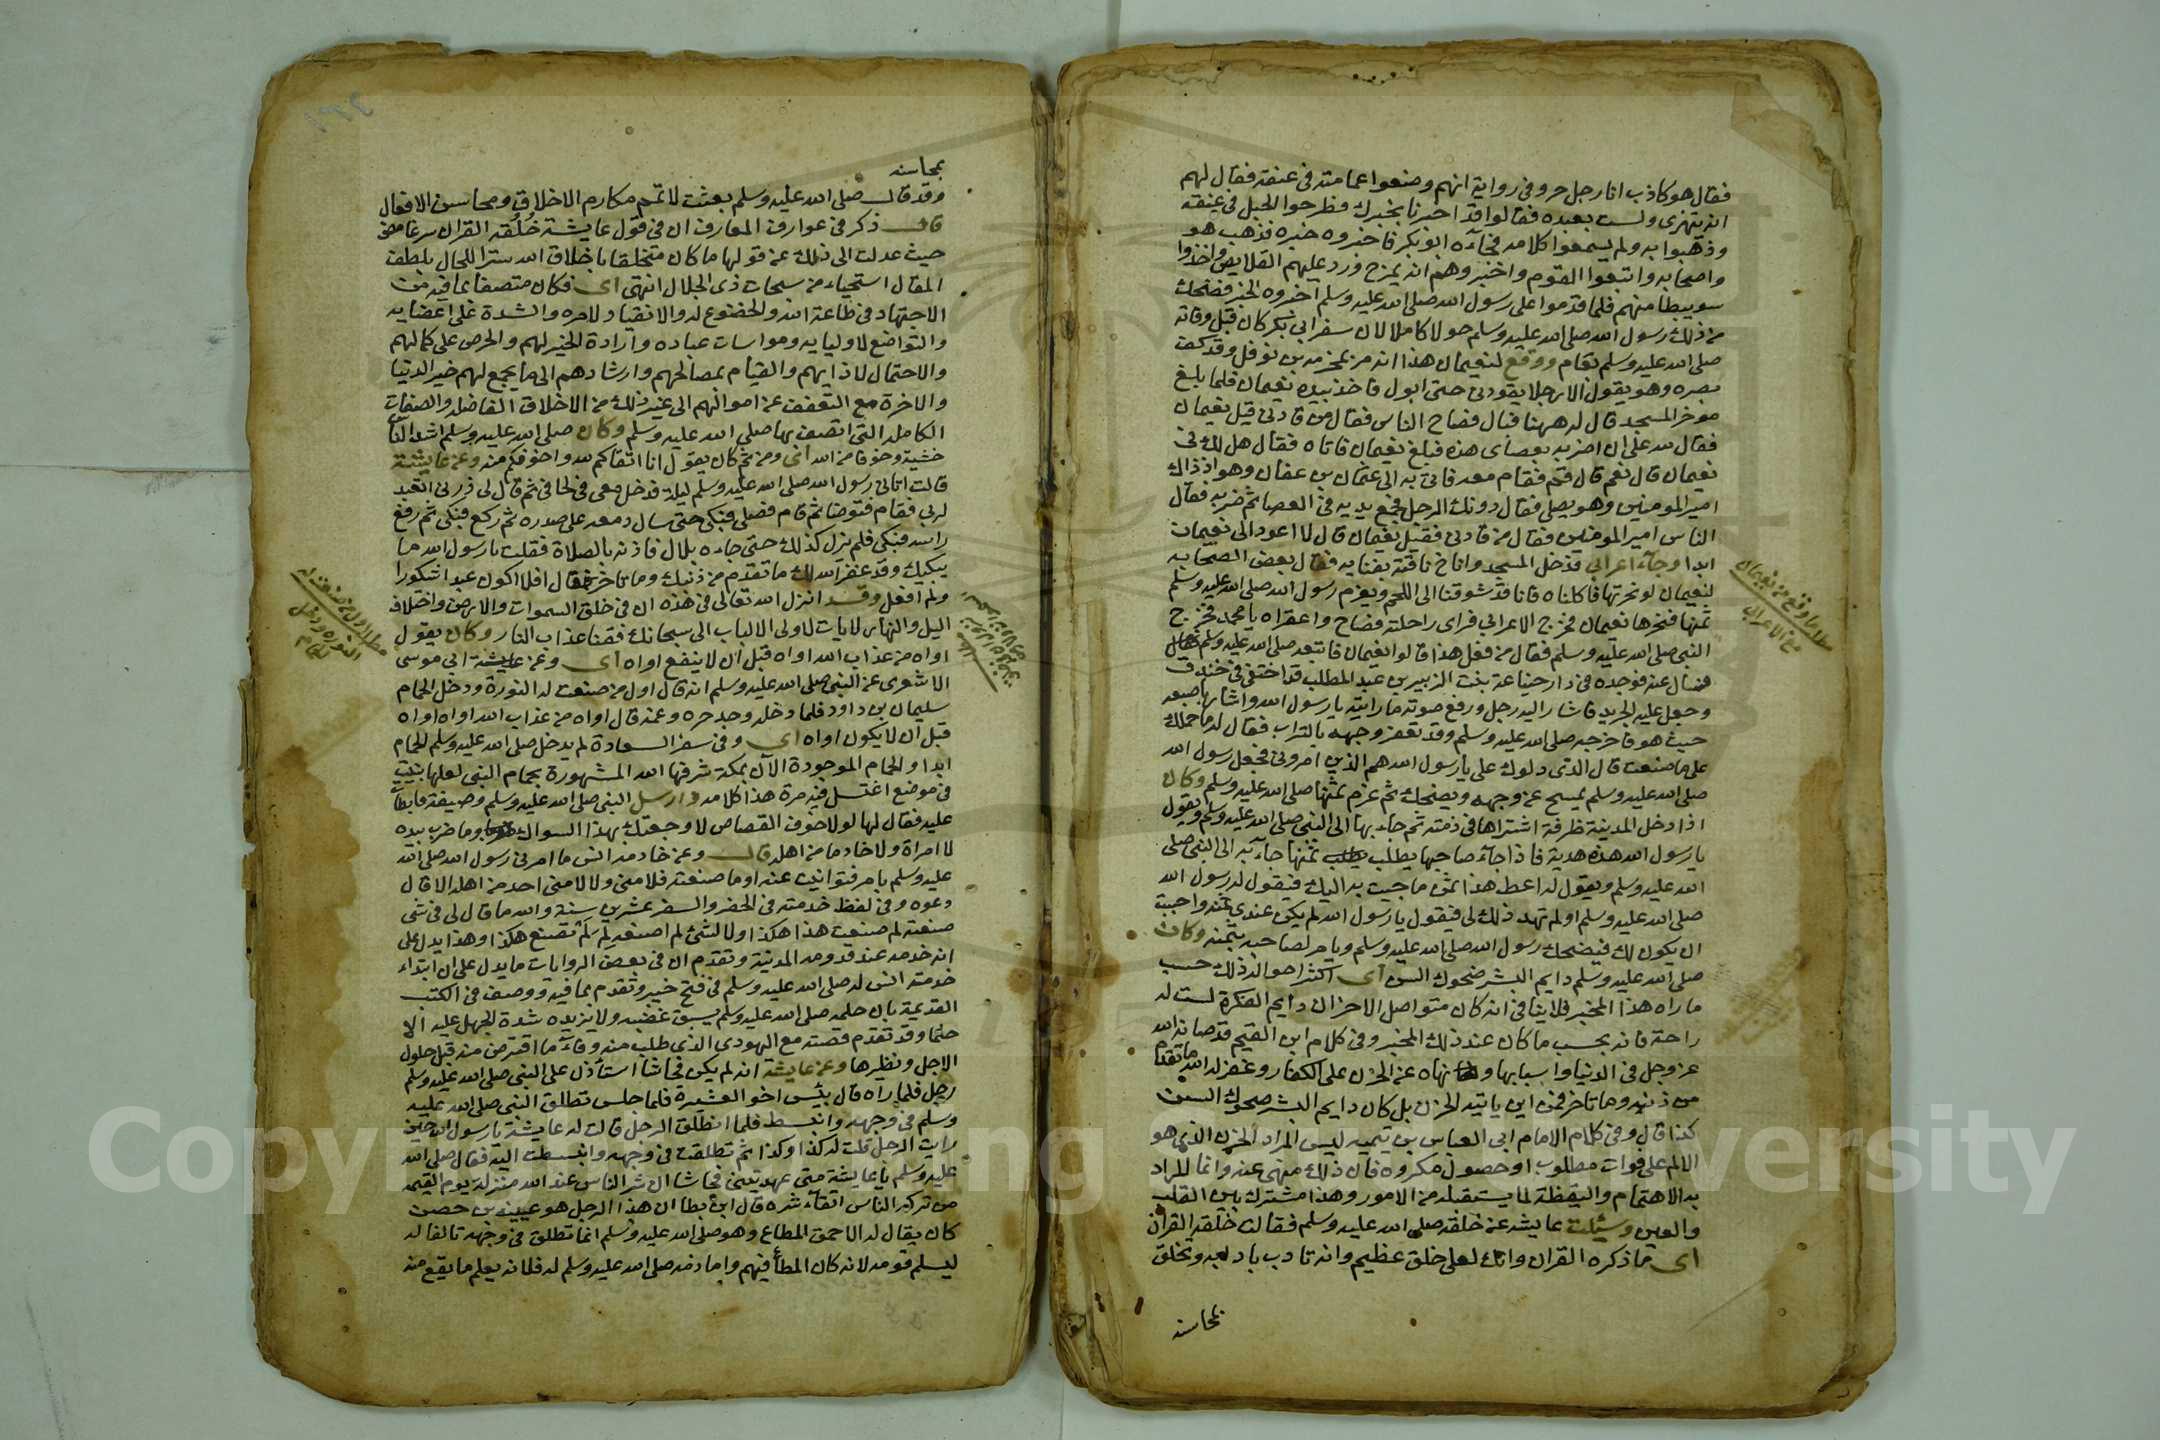 فقال هو كاذب انا رجل حر وفي رواية انهم وضعوا عمامته في عنقه فقال لهم
انه يتهزى ولست بعبده فقالوا قد اخبرنا بخبرك فطرحوا الحبل في عنقه
وذهبوا به ولم يسمعوا كلامه فجآء ابو بكر فاخبروه خبره فذهب هو
واصحابه واتبعوا القوم واخبروهم انه يمزح فرد عليهم القلايص واخذوا
سويبطا منهم فلما قدموا على رسول الله صلى الله عليه وسلم اخبروه الخبر فضحك
من ذلك رسول الله صلى الله عليه وسلم حولا كاملا لان سفر ابي بكر كان قبل وفاته
صلى الله عليه وسلم بعام ووقع لنعيمان هذا انه مر بمخرمة بن نوفل وقد كف
بصره وهو يقول الا رجل يقودني حتى ابول فاخذ بيده نعيمان فلما بلغ
موخر المسجد قال له ههنا فبال فصاح الناس فقال من قادني قيل نعيمان
فقال لله على ان اضربه بعصاى هذه فبلغ نعيمان فاتاه فقال هل لك في
نعيمان قال نعم قال قم فقام معه فاتى به الى عثمان بن عفان وهو اذ ذاك
امير المومنين وهو يصلى فقال دونك الرجل فجمع يديه في العصا ثم ضربه فقال
الناس امير المومنين فقال من قادني فقيل نعيمان قال لا اعود الى نعيمان
ابدا وجآء اعرابي فدخل المسجد واناخ ناقته بفنايه فقال بعض الصحابه
لنعيمان لو نحرتها فاكلناه فانا قد شوقنا الى اللحم ويغرم رسول الله صلى الله عليه وسلم
ثمنها فنحرها نعيمان فخرج الاعرابي فراى راحلته فصاح واعقراه يا محمد فخرج
النبي صلى الله عليه وسلم فقال من فعل هذا قالوا نعيمان فاتبعه صلى الله عليه وسلم
فسال عنه فوجده في دار ضباعة بنت الزبير بن عبد المطلب قد اختفى في خندق
وجعل عليه الجريد فاشار اليه رجل ورفع صوته ما رايته يا رسول الله واشار باصبعه
حيث هو فاخرجه صلى الله عليه وسلم وقد تعفر وجهه بالتراب فقال له ما حملك
على ما صنعت قال الذى دلوك على يا رسول الله هم الذين امروني فجعل رسول الله
صلى الله عليه وسلم يمسح عن وجهه ويضحك ثم غرم ثمنها صلى الله عليه وسلم وكان
اذا دخل المدينة طرفة اشتراها في ذمته ثم جاء بها الى النبي صلى الله عليه وسلم ويقول
يا رسول الله هذه هدية فاذا جآء صاحبها يطلب ثمنها جآء به الى النبي صلى
الله عليه وسلم ويقول له اعط هذا ثمن ما جيت به اليك فيقول له رسول الله
صلى الله عليه وسلم اولم تهد ذلك لى فيقول يا رسول الله لم يكن عندي ثمنه واحببت
ان يكون لك فيضحك رسول الله صلى الله عليه وسلم ويامر لصاحبه بثمنه وكان
صلى الله عليه وسلم دايم البشر ضحوك السن اى اكثر احواله ذلك حسب
ما راه هذا المخبر فلا ينافي انه كان متواصل الاحزان دايم الفكرة ليست له
راحة فانه بحسب ما كان عند ذلك المخبر وفي كلام ابن القيم قد صانه الله
عز وجل في الدنيا واسبابها ونهاه عن الحزن على الكفار وغفر له الله ما تقدم
من ذنبه وما تاخر فمن اين ياتيه الحزن بل كان دايم البشر ضحوك السن
كذا قال وفي كلام الامام ابي العباس بن تيميه ليس المراد الحزن الذي هو
الالم على فوات مطلوب او حصول مكروه فان ذلك منهى عنه وانما المراد
به الاهتمام واليقظة لما يستقبله من الامور وهذا مشترك بين القلب
والعين وسئلت عايشه عن خلقه صلى الله عليه وسلم فقالت خلقه القران
اى ما ذكره القران وانك لعلى خلق عظيم وانه تادب بادابه وتخلق
بمحاسنه
مطلب ما وقع من نعيمان
مع الاعرابي
بمحاسنه
وقد قال صلى الله عليه وسلم بعثت لاتمم مكارم الاخلاق ومحاسن الافعال
قال ذكر في عوارف المعارف ان في قول عايشة خُلُقه القران سر غامض
حيث عدلت الى ذلك عن قولها ما كان متخلقا باخلاق الله سترا للحال بلطف
المقال استحياء من سبحات ذى الجلال انتهى اى فكان متصفا بما فيه من
الاجتهاد في طاعة الله والخضوع له والانقياد لامره والشدة على اعدايه
والتواضع لاوليايه ومواسات عباده وارادة الخير لهم والحرص على كمالهم
والاحتمال لاذايهم والقيام بمصالحهم وارشادهم الى ما يجمع لهم خير الدنيا
والاخرة مع التعفف عن اموالهم الى غير ذلك من الاخلاق الفاضله والصفات
الكامله التى اتصف بها صلى الله عليه وسلم وكان صلى الله عليه وسلم اشد الناس
خشية وخوفا من الله اى ومن ثم كان يقول انا اتقاكم لله واخوفكم منه وعن عايشة
قالت اتاني رسول الله صلى الله عليه وسلم ليلة فدخل معى في لحافى ثم قال لى ذريني اتعبد
لربي فقام فتوضا ثم قام فصلى فبكى حتى سال دمعه على صدره ثم ركع فبكى ثم رفع
راسه فبكى فلم يزل كذلك حتى جاءه بلال فاذنه بالصلاة فقلت يا رسول الله ما
يبكيك وقد غفر الله لك ما تقدم من ذنبك وما تاخر فقال افلا اكون عبدا شكورا
ولم افعل وقد انزل الله تعالى في هذه ان في خلق السموات والارض واختلاف
اليل والنهار لايات لاولى الالباب الى سبحانك فقنا عذاب النار وكان يقول
اواه من عذاب الله اواه قبل ان لا ينفع اواه اى وعن ابي موسى
الاشعرى عن النبي صلى الله عليه وسلم انه قال اول من صنعت له النورة ودخل الحمام
سليمان بن داود فلما دخله وجد حره وغمه قال اواه من عذاب الله اواه اواه
قبل ان لا يكون اواه اى وفي سفر السعادة لم يدخل صلى الله عليه وسلم الحمام
ابدا والحمام الموجودة الآن بمكة شرفها الله المشهورة بحمام النبي لعلها بنيت
في موضع اغتسل فيه مرة هذا كلامه وارسل النبي صلى الله عليه وسلم وصيفة فابطات
عليه فقال لها لولا خوف القصاص لاوجعتك بهذا السواك وما ضرب بيده
لا امراة ولا خادما من اهله قال وعن خادمه انس ما امرني رسول الله صلى الله
عليه وسلم بامر فتوانيت عنه او ما صنعته فلامنى ولا لامنى احد من اهله الا قال
دعوه وفي لفظ خدمته في الحضر والسفر عشرين سنة والله ما قال لى في شى
صنعته لم صنعت هذا هكذا ولا لشئ لم اصنعه لم لم تصنع هكذا وهذا يدل على
انه خدمه عند قدومه المدينة وتقدم ان في بعض الروايات ما يدل على ان ابتداء
خدمة انس له صلى الله عليه وسلم في فتح خيبر وتقدم بما فيه ووصف في الكتب
القديمة بان حلمه صلى الله عليه وسلم يسبق غضبه ولا يزيده شدة الجهل عليه الا
حلما وقد تقدم قصته مع اليهودى الذى طلب منه وفآء ما اقترض منه قبل حلول
الاجل ونظيرها وعن عايشة انه لم يكن فحاشا استاذن على النبي صلى الله عليه وسلم
رجل فلما راه قال بئس اخو العشيرة فلما جلس تطلق النبي صلى الله عليه
وسلم في وجهه وانبسط فلما انطلق الرجل قالت له عايشة يا رسول الله حين
رايت الرجل قلت له كذا وكذا ثم تطلقت في وجهه وانبسطت اليه فقال صلى الله
عليه وسلم يا عايشة متى عهدتينى فحاشا ان شر الناس عند الله منزلة يوم القيمه
من تركه الناس اتقآء شره قال ابن بطال ان هذا الرجل هو عيينه بن حصن
كان يقال له الاحمق المطاع وهو صلى الله عليه وسلم انما تطلق في وجهه تالفا له
ليسلم قومه لانه كان المطاع فيهم واما ذمه صلى الله عليه وسلم له فلانه يعلم ما يقع منه
مطلب اول من صنعت له
النورة ودخل
الحمام